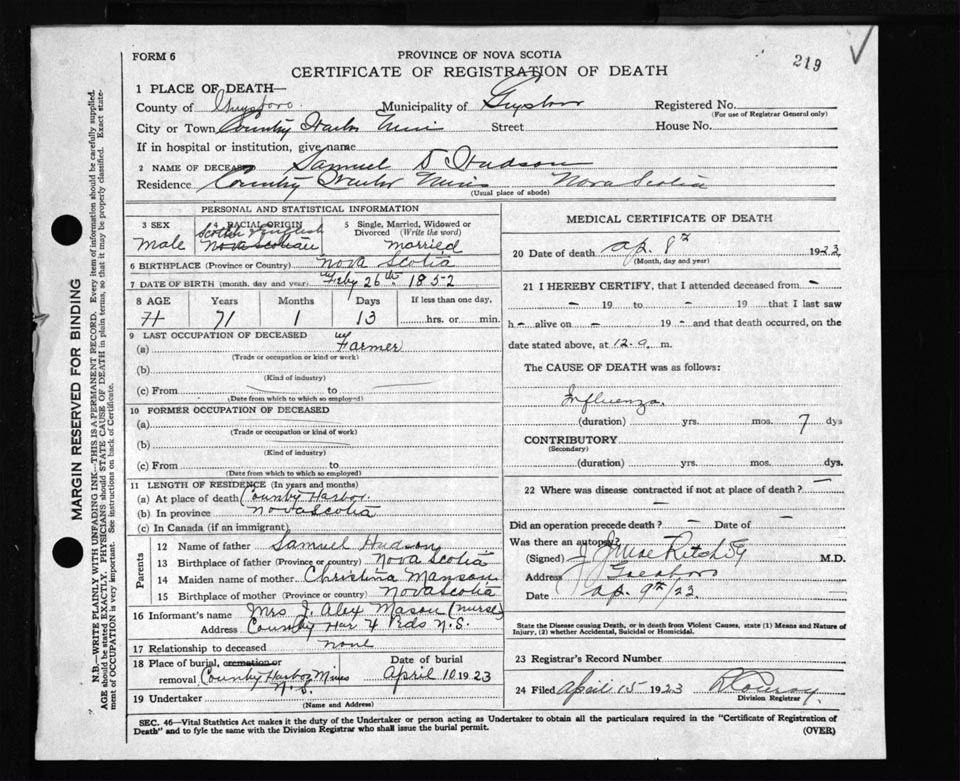 219
FORM 6
PROVINCE OF NOVA SCOTIA
CERTIFICATE OF REGISTRATION OF DEATH
1 PLACE OF DEATH—
County of Guysboro Municipality of Registered No.
(For use of Registrar General only)
City or Town Country Harbor Street House No.
If in hospital or institution, give name
2 NAME OF DECEASED Samuel D Hudson
Residence Country Harbor Mines Nova Scotia
(Usual place of abode)
PERSONAL AND STATISTICAL INFORMATION
3 SEX 4 RACIAL ORIGIN 5 Single, Married, Widowed or Divorced (Write the word)
Male Scotch Nova Scotian married
6 BIRTHPLACE (Province or Country) Nova Scotia
7 DATE OF BIRTH (month, day and year) Feby 26th 1852
8 AGE Years Months Days If less than one day,
71 1 13 hrs. or min.
9 LAST OCCUPATION OF DECEASED
(a) Farmer
(Trade or occupation or kind of work)
(b)
(Kind of industry)
(c) From to
(Date from which to which so employed)
10 FORMER OCCUPATION OF DECEASED
(a)
(Trade or occupation or kind of work)
(b)
(Kind of industry)
(c) From to
(Date from which to which so employed)
11 LENGTH OF RESIDENCE (In years and months)
(a) At place of death Country Harbor.
(b) In province Nova Scotia
(c) In Canada (if an immigrant)
Parents
12 Name of father Samuel Hudson
13 Birthplace of father (Province or country) Nova Scotia
14 Maiden name of mother Christina Manson
15 Birthplace of mother (Province or country) Nova Scotia
16 Informant's name Mrs J. Alex Mason (nurse)
Address Country Har N.S.
17 Relationship to deceased none
18 Place of burial, cremation or removal Country Harbor Mines N.S.
Date of burial April 10 1923
19 Undertaker
(Name and Address)
MEDICAL CERTIFICATE OF DEATH
20 Date of death Ap. 8th 1923
(Month, day and year)
21 I HEREBY CERTIFY, that I attended deceased from –
– 19 to – 19 that I last saw
h – alive on – 19 – and that death occurred, on the
date stated above, at 12. a m.
The CAUSE OF DEATH was as follows:
Influenza
(duration) yrs. mos. 7 dys
CONTRIBUTORY
(Secondary)
(duration) yrs. mos. dys.
22 Where was disease contracted if not at place of death? –
Did an operation precede death? – Date of –
Was there an autopsy?
(Signed) M.D.
Address
Date Ap. 9th/23
State the Disease causing Death, or in death from Violent Causes, state (1) Means and Nature of
Injury, (2) whether Accidental, Suicidal or Homicidal.
23 Registrar's Record Number
24 Filed April 15 1923
Division Registrar
SEC. 46—Vital Statistics Act makes it the duty of the Undertaker or person acting as Undertaker to obtain all the particulars required in the "Certificate of Registration of
Death" and to fyle the same with the Division Registrar who shall issue the burial permit. (OVER)
MARGIN RESERVED FOR BINDING
N.B.—WRITE PLAINLY WITH UNFADING INK—THIS IS A PERMANENT RECORD. Every item of information should be carefully supplied.
AGE should be stated EXACTLY. PHYSICIANS should STATE CAUSE OF DEATH in plain terms, so that it may be properly classified. Exact state-
ment of OCCUPATION is very important. See instructions on back of Certificate.